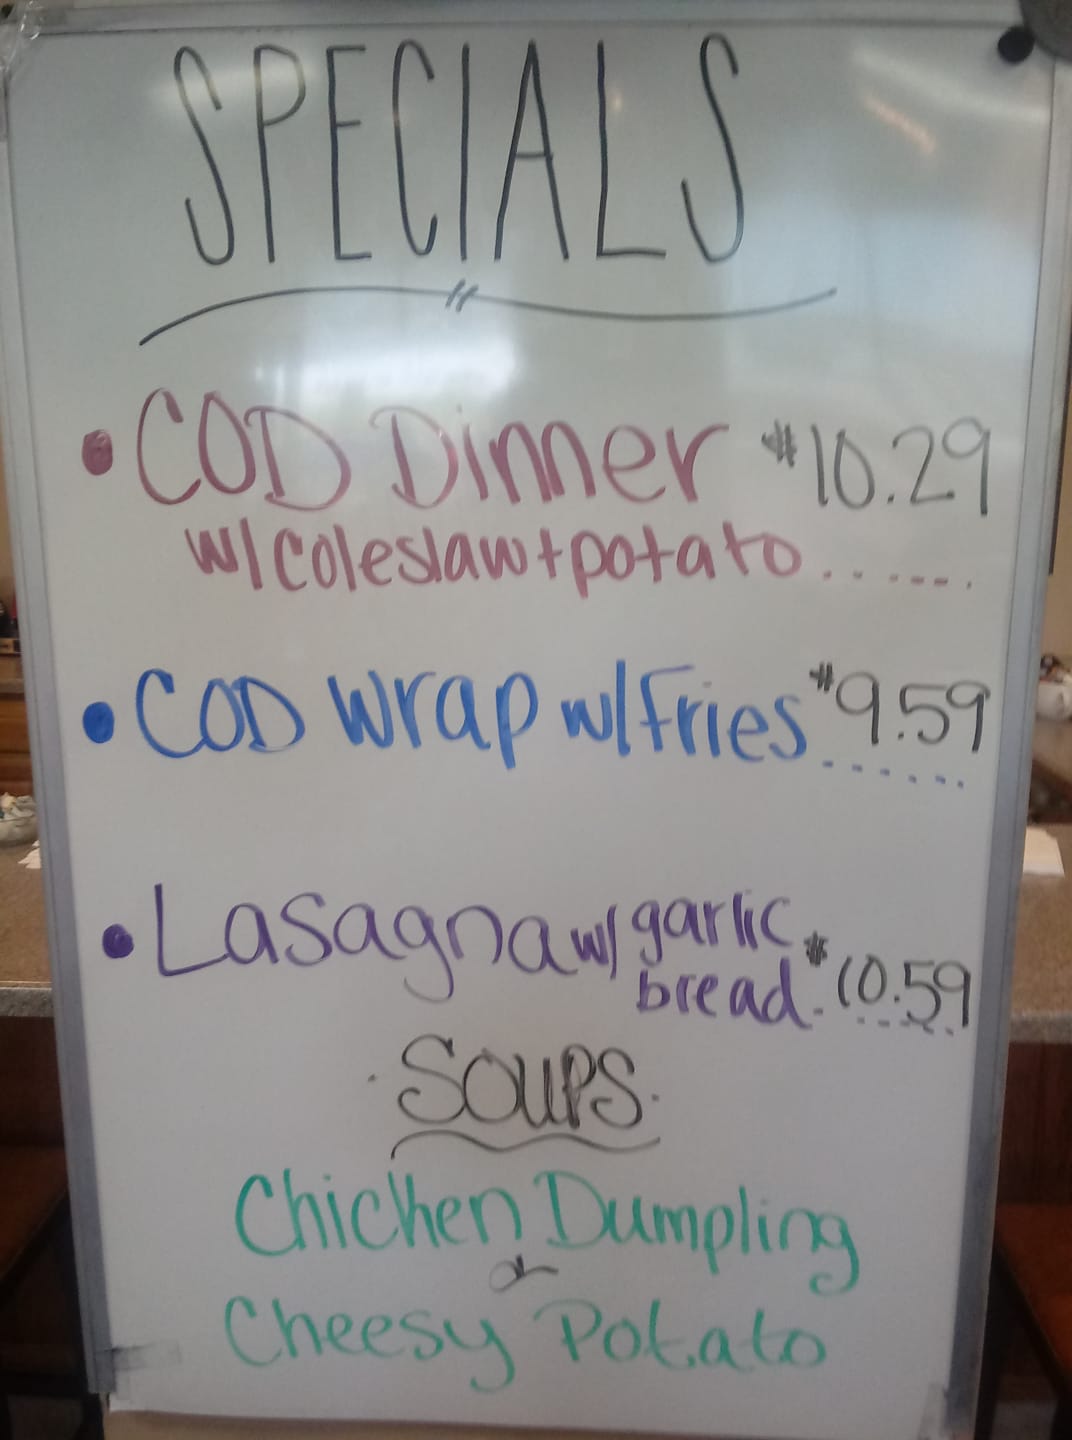 SPECIALS
• COD Dinner $10.29
w/ coleslaw + potato.......
• COD wrap w/ Fries $9.59
......
• Lasagna w/ garlic
bread. $10.59
SOUPS
Chicken Dumpling
or
Cheesy Potato